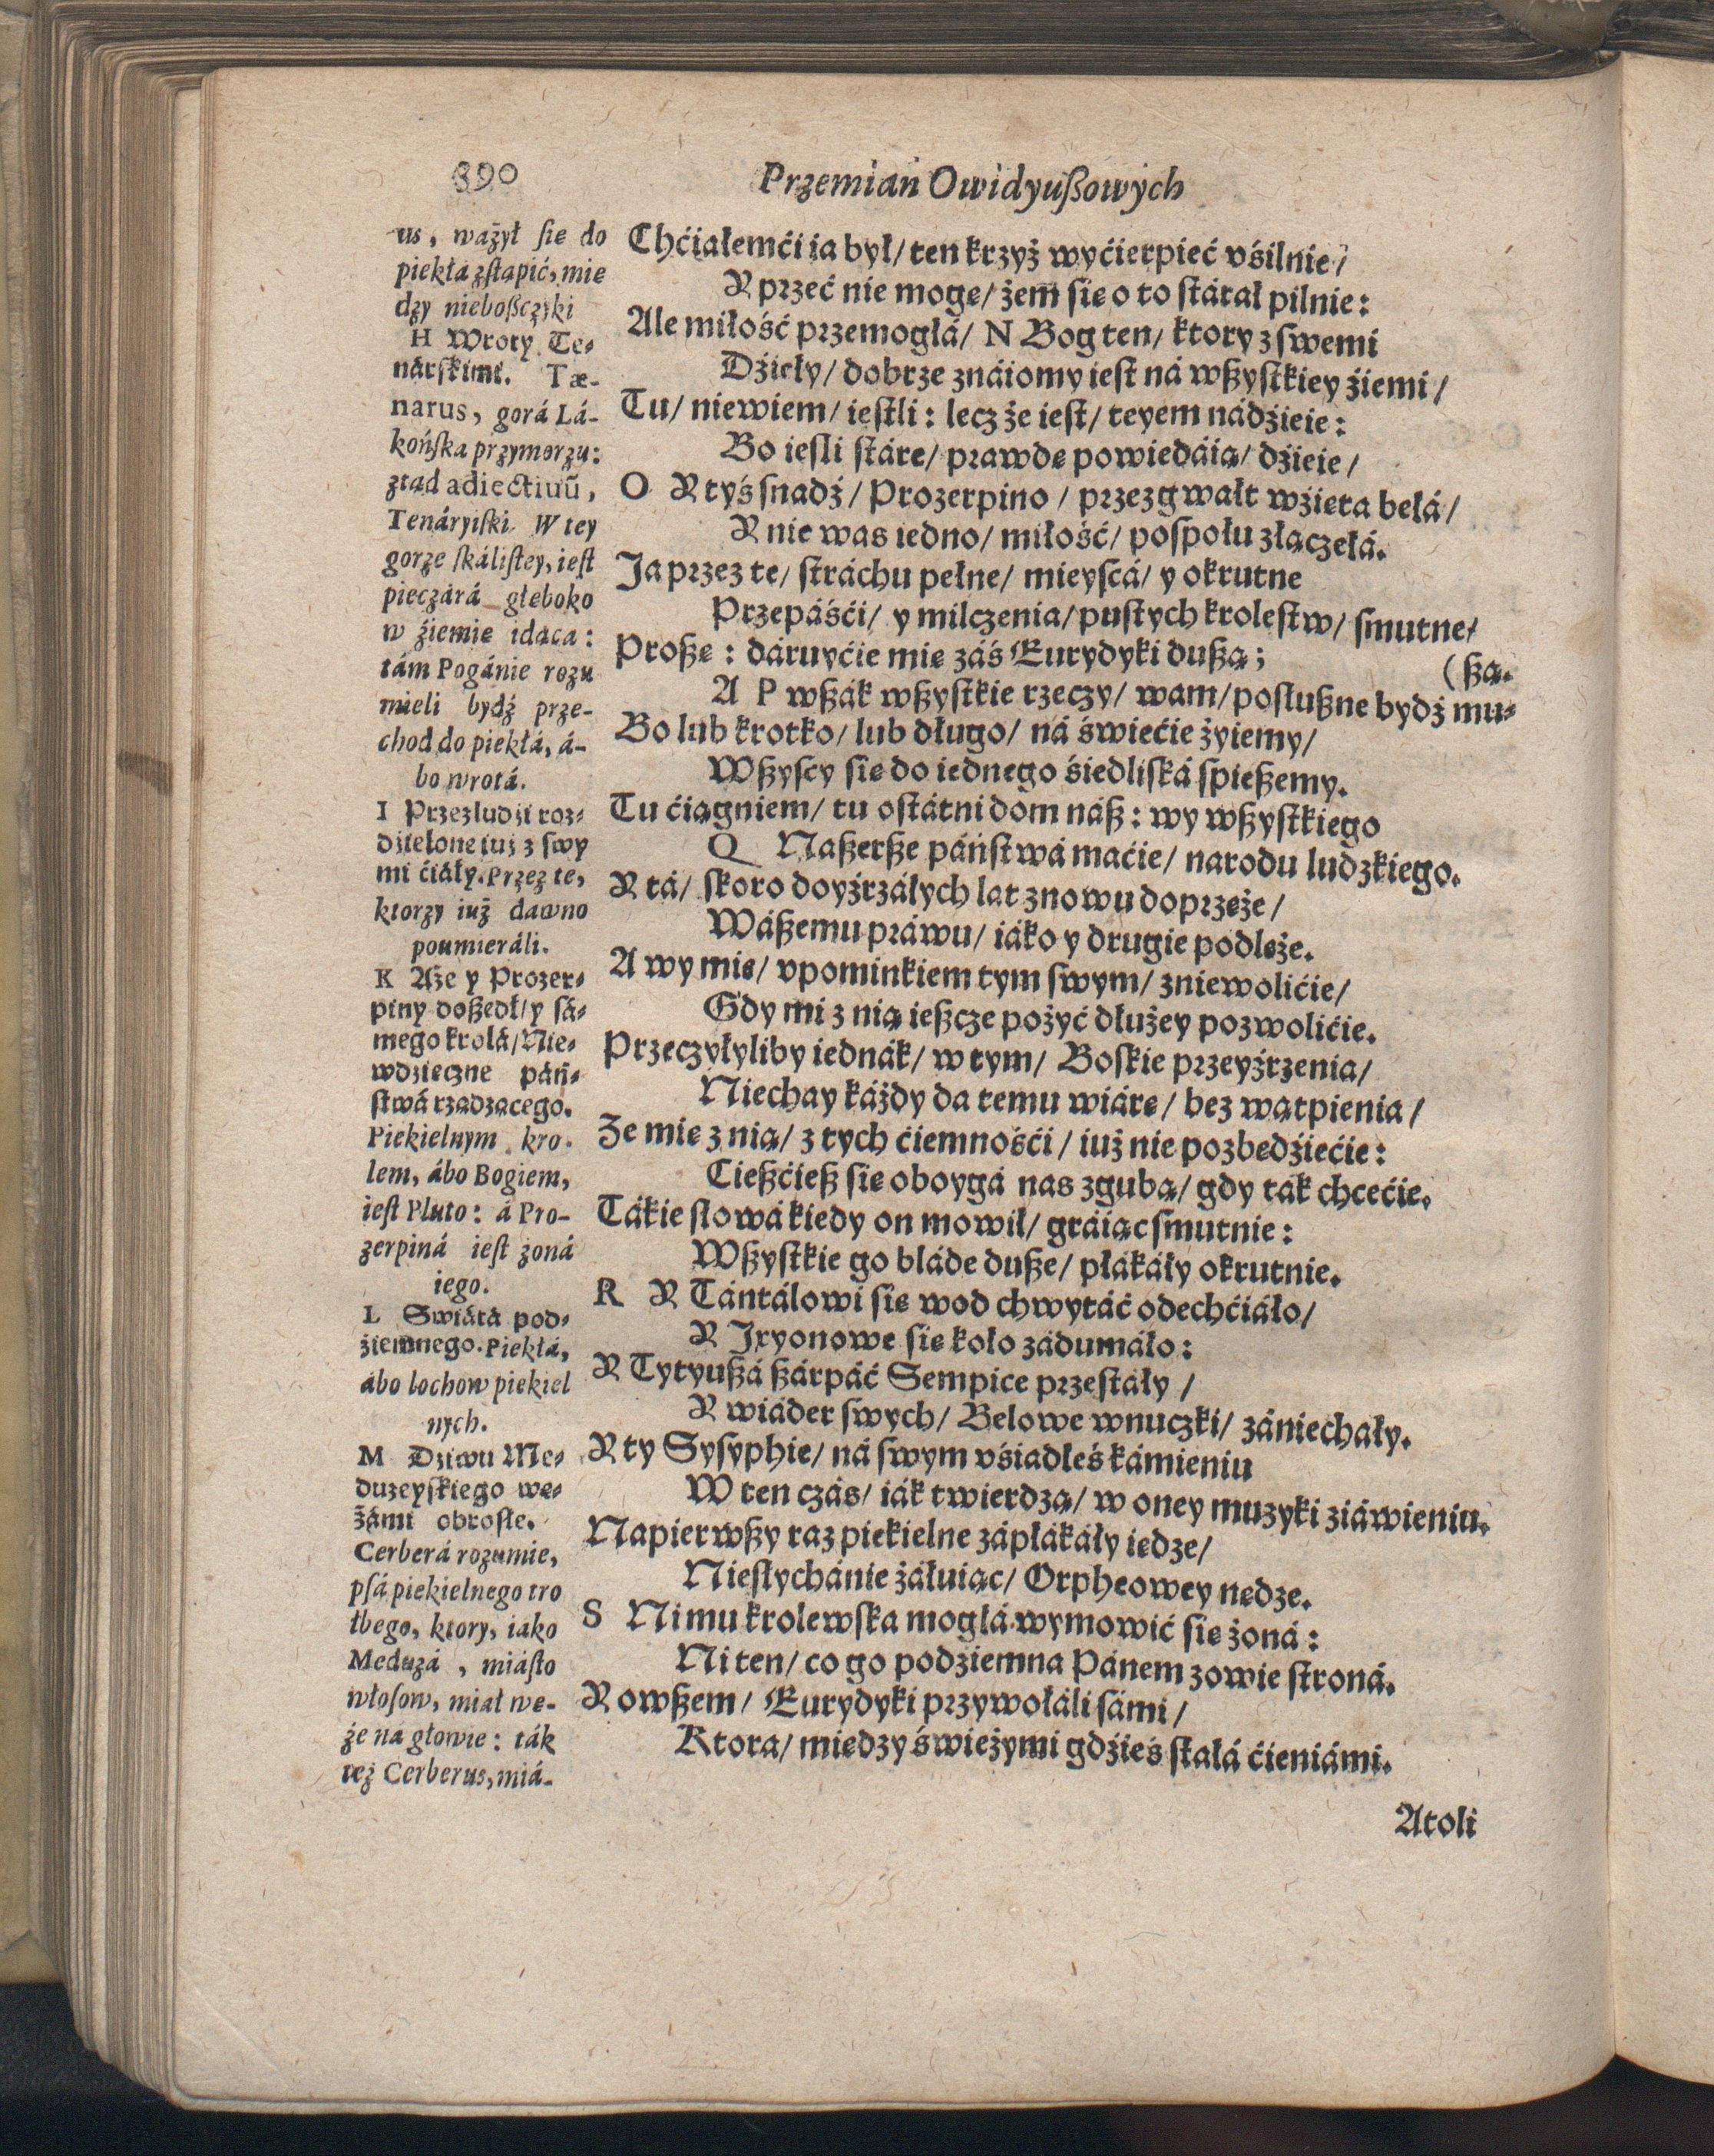 390
Przemian Owidyußowych
us, ważył ſie do
piekła zſtapić, mie
dzy nieboßczyki
H Wroty Te-
nárſkimi. Tæ-
narus, gorá Lá-
końſka przymorzu:
ztad adiectiuũ,
Tenáryiſki. W tey
gorze ſkáliſtey, ieſt
pieczárá głeboko
w źiemie idaca:
tám Pogánie rozu
mieli bydź prze-
chod do piekłá, á-
bo wrotá.
I Przez ludzi roz-
dźielone iuż z ſwy
mi ćiáły. Przez te,
ktorzy iuż dawno
poumieráli.
K Aże y Prozer-
piny doßedł/ y ſá-
mego krolá/ Nie-
wdzieczne páń-
ſtwá rzadzacego.
Piekielnym kro-
lem, ábo Bogiem,
ieſt Pluto: á Pro-
zerpiná ieſt żoná
iego.
L Swiátá pod-
źiemnego. Piekłá,
ábo lochow piekiel
nych.
M Dziwu Me-
duzeyſkiego wę-
żámi obroſłe.
Cerberá rozumie,
pſá piekielnego tro
łbego, ktory, iako
Meduzá, miáſto
włoſow, miał we-
że na głowie: ták
też Cerberus, miá-
Chćiałemći ia był/ ten krzyż wyćierpieć vśilnie/
Y przeć nie mogę/ żem ſię o to ſtárał pilnie:
Ale miłość przemogłá/ N Bog ten/ ktory z ſwemi
Dźieły/ dobrze znáiomy ieſt ná wßyſtkiey źiemi/
Tu/ niewiem/ ieſtli: lecz że ieſt/ teyem nádźieie:
Bo ieſli ſtáre/ prawdę powiedáią/ dźieie/
O Y tyś ſnadź/ Prozerpino/ przez gwałt wźięta belá/
Y nie was iedno/ miłość/ poſpołu złączełá.
Ja przez te/ ſtráchu pełne/ mieyſcá/ y okrutne
Przepáśći/ y milczenia/ puſtych kroleſtw/ ſmutne/
Proßę: dáruyćie mię záś Eurydyki dußą;
(ßą.
A P wßák wßyſtkie rzeczy/ wam/ poſłußne bydź mu-
Bo lub krotko/ lub długo/ ná świećie żyiemy/
Wßyſcy ſię do iednego śiedliſká ſpießemy.
Tu ćiągniem/ tu oſtátni dom náß: wy wßyſtkiego
Q Naßerße páńſtwá maćie/ narodu ludzkiego.
Y tá/ ſkoro doyźrzáłych lat znowu doprzeże/
Wáßemu práwu/ iáko y drugie podleże.
A wy mię/ vpominkiem tym ſwym/ zniewolićie/
Gdy mi z nią ießcze pożyć dłużey pozwolićie.
Przeczyłyliby iednák/ w tym/ Boſkie przeyźrzenia/
Niechay káżdy da temu wiárę/ bez wątpienia/
Że mię z nią/ z tych ćiemnośći/ iuż nie pozbędźiećie:
Cießćieß ſię oboygá nas zgubą/ gdy ták chcećie.
Tákie ſłowá kiedy on mowił/ gráiąc ſmutnie:
Wßyſtkie go bláde duße/ płákáły okrutnie.
R Y Tántálowi ſię wod chwytáć odechćiáło/
Y Jxyonowe ſię koło zádumáło:
Y Tytyußá ßárpáć Sempice przeſtáły/
Y wiáder ſwych/ Belowe wnuczki/ zániechały.
Y ty Syſyphie/ ná ſwym vśiadłeś kámieniu
W ten czás/ iák twierdzą/ w oney muzyki ziáwieniu.
Napierwßy raz piekielne zápłákáły iędze/
Niesłychánie żáłuiąc/ Orpheowey nędze.
S Ni mu krolewſka mogłá wymowić ſię żoná:
Ni ten/ co go podziemna Pánem zowie ſtroná.
Y owßem/ Eurydyki przywołáli ſámi/
Ktora/ między świeżymi gdźieś ſtałá ćieniámi.
Atoli